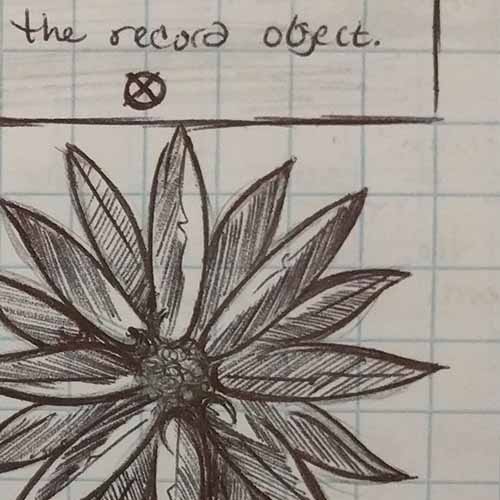 the record object.